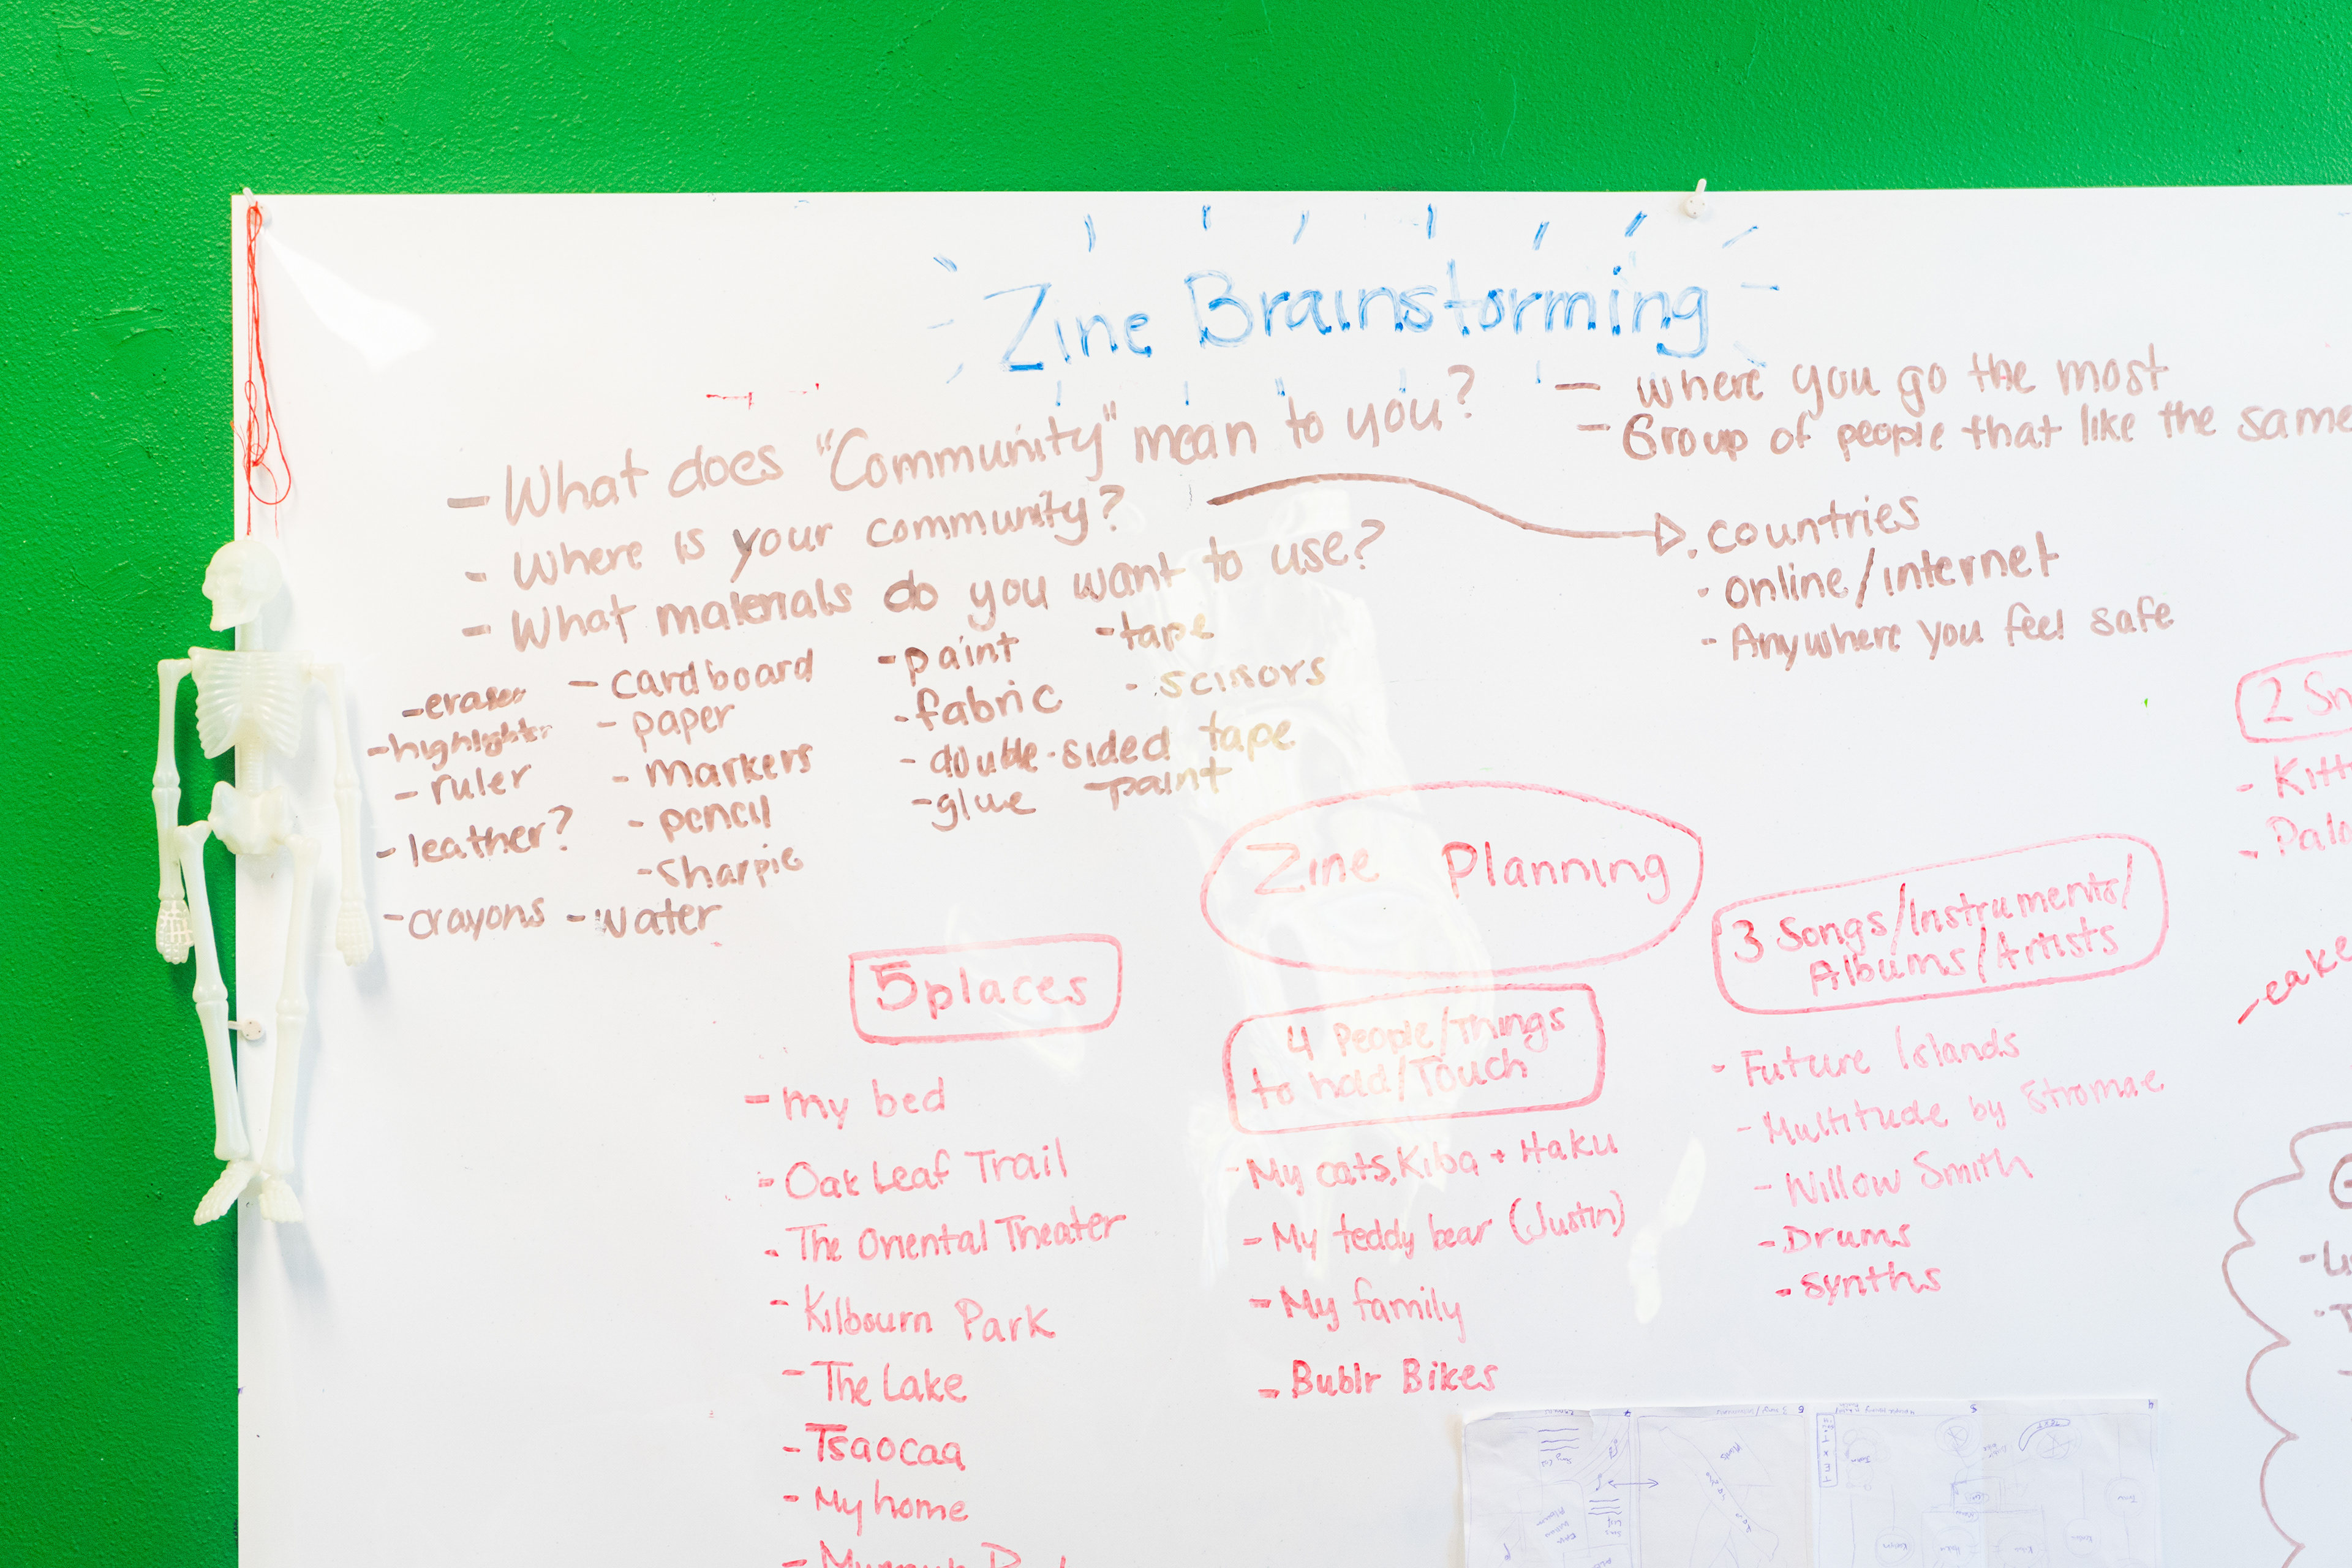 Zine Brainstorming
- What does "Community" mean to you?
- Where is your community?
- What materials do you want to use?
- where you go the most
- Group of people that like the same
• countries
• online/internet
- Anywhere you feel safe
- eraser
- highlighter
- ruler
- leather?
- crayons
- cardboard
- paper
- markers
- pencil
- sharpie
- water
- paint
- fabric
- double-sided tape
- glue
- tape
- scissors
- paint
Zine Planning
5 places
- My bed
- Oak Leaf Trail
- The Oriental Theater
- Kilbourn Park
- The Lake
- Tsaocaa
- My home
4 People/Things
to hold/Touch
- My cats, Kiba + Haku
- My teddy bear (Justin)
- My family
- Bublr Bikes
3 Songs/Instruments/
Albums/Artists
- Future Islands
- Multitude by Stromae
- Willow Smith
- Drums
- Synths
2 Sn
- Kitt
- Palo
- cake